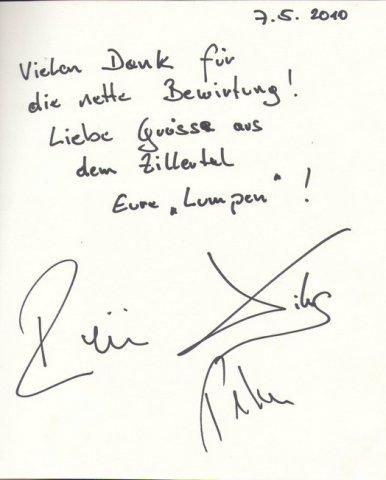 7.5. 2010
Vielen Dank für
die nette Bewirtung!
Liebe Grüsse aus
dem Zillertal
Eure „Lumpen“ !